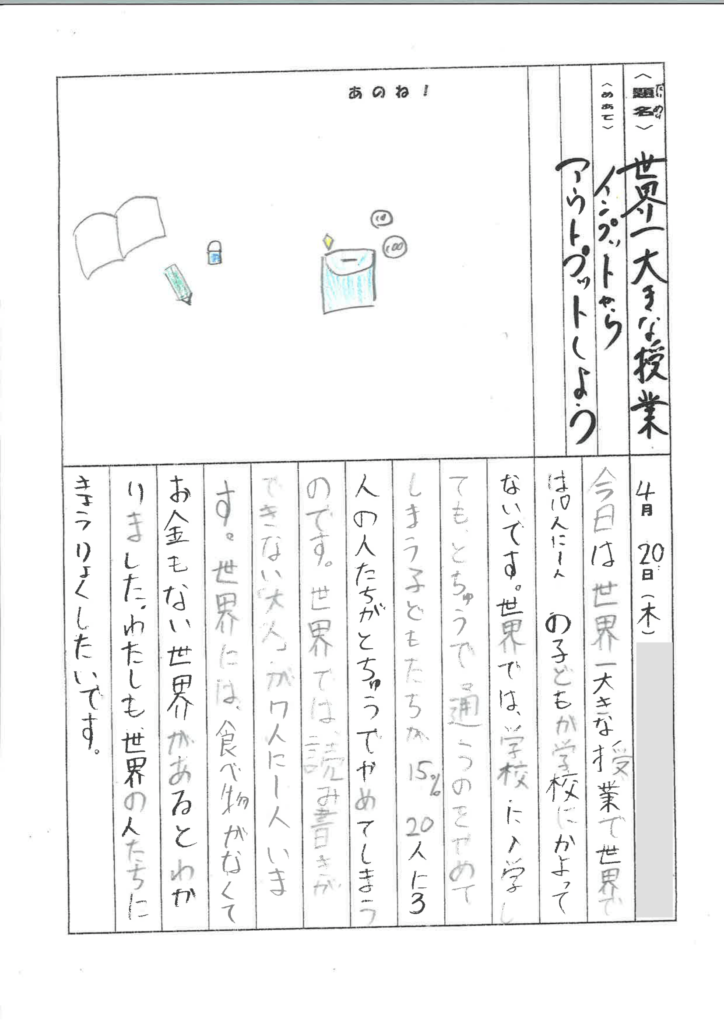 〈題名〉
だいめい
世界一大きな授業
〈めあて〉
インプットから
アウトプットしよう
あのね！
10
100
4月20日（木）
今日は世界一大きな授業で世界で
は10人に1人の子どもが学校にかよって
ないです。世界では、学校に入学し
ても、とちゅうで通うのをやめて
しまう子どもたちが15%20人に3
人の人たちがとちゅうでやめてしまう
のです。世界では、読み書きが
できない「大人」が7人に1人いま
す。世界には、食べ物がなくて
お金もない世界があるとわか
りました。わたしも、世界の人たちに
きょうりょくしたいです。